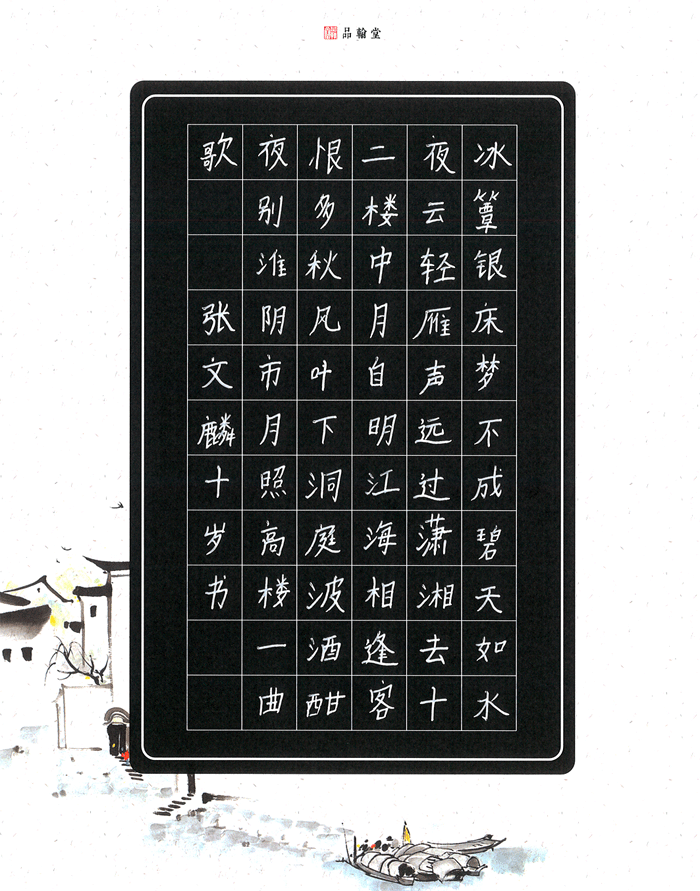 品翰堂
冰簟银床梦不成碧天如水
夜云轻雁声远过潇湘去十
二楼中月自明江海相逢客
恨多秋风叶下洞庭波酒酣
夜别淮阴市月照高楼一曲
歌 张文麟十岁书